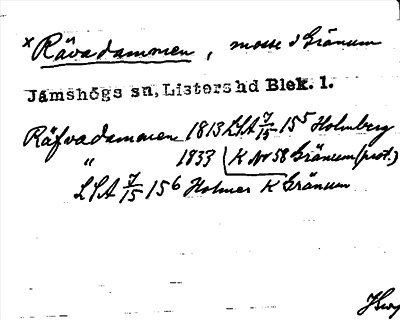 x Rävadammen, mosse i Gränum
Jämshögs sn, Listers hd Blek. l.
Räfvadammen 1813 LSA 7/15 155 Holmberg
" 1833 K Nr 58 Gränum (prot.)
LSA 7/15 156 Holmer K Gränum